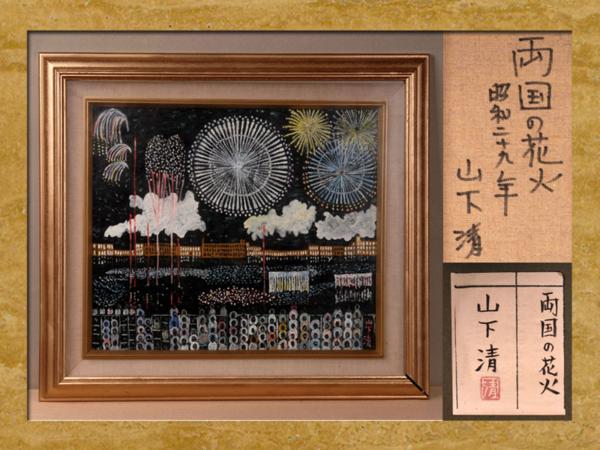 両国の花火
昭和二十九年
山下清
両国の花火
山下清
清